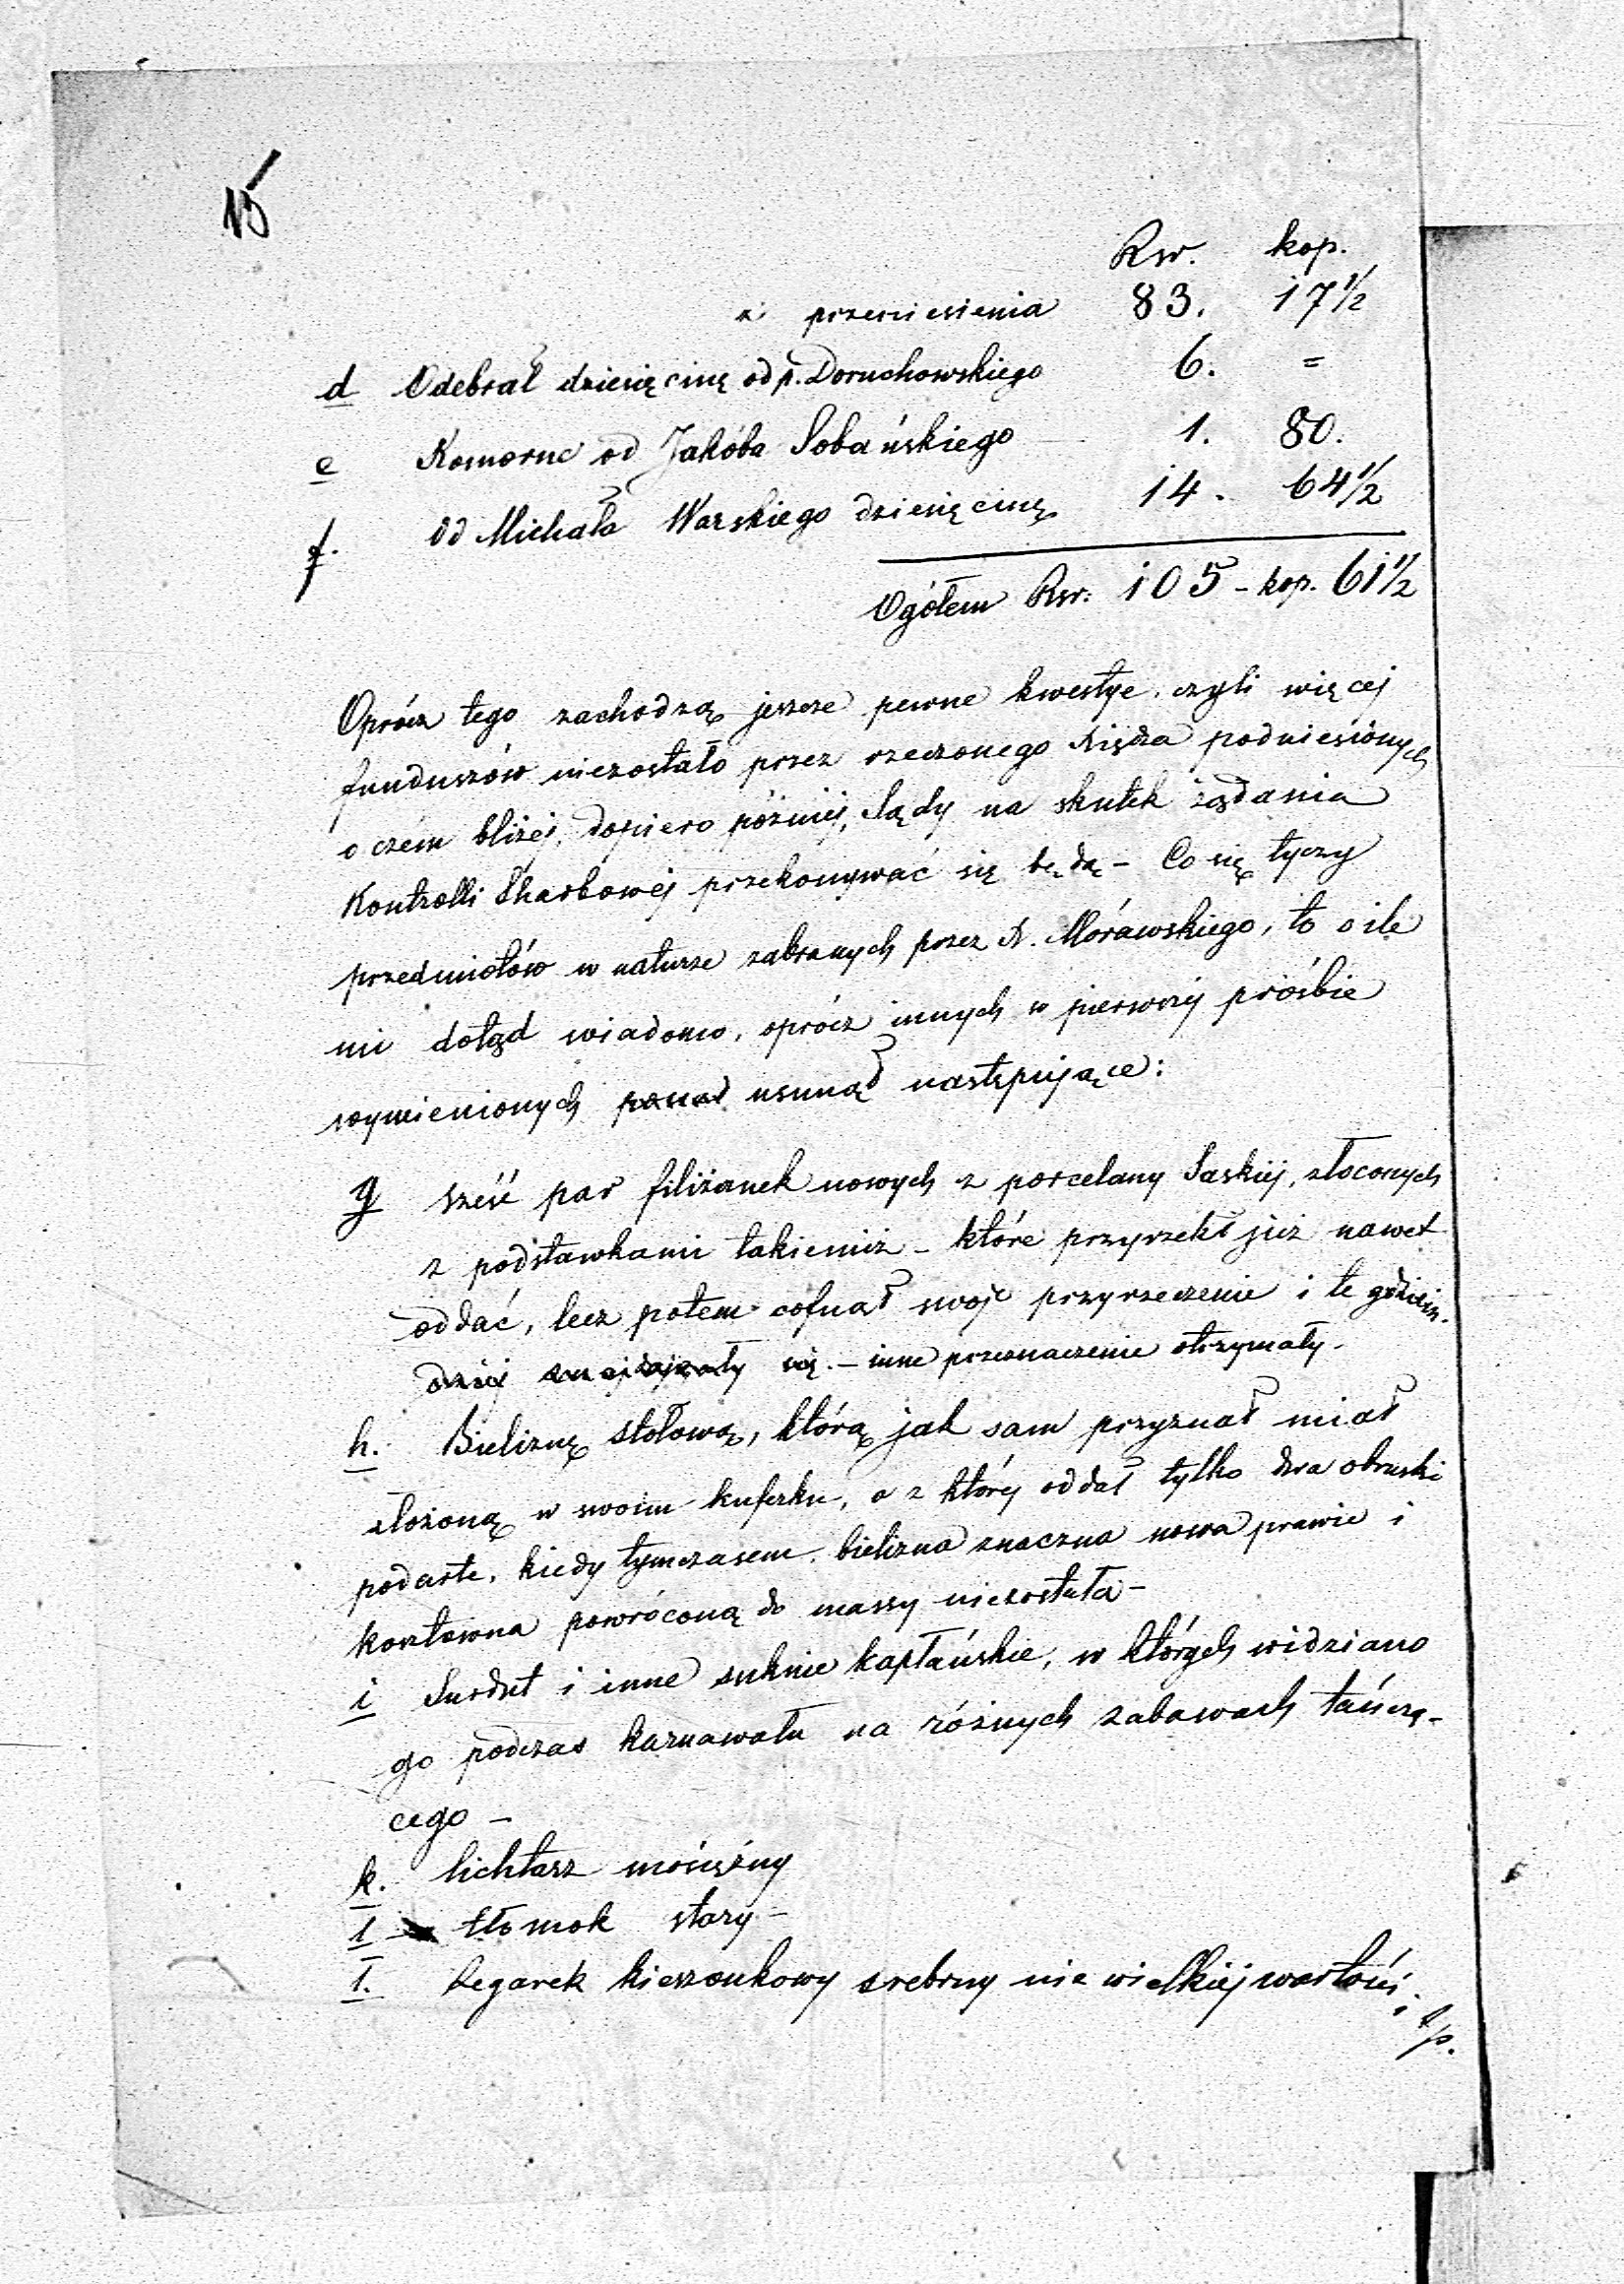 15
Rsr. kop.
z przeniesienia 83. 17½
d Odebrał dziesięcinę od p. Doruchowskiego 6. =
e Komorne od Jakóba Sobańskiego 1. 80.
f. od Michała Warskiego dziesięcinę 14. 64½
Ogółem Rsr. 105 - kop. 61½
Oprócz tego zachodzą jeszcze pewne kwestye, czyli więcej
funduszów niezostało przez rzeczonego Księdza podniesionych
o czém bliżéj, dopiero późniéj, Sądy na skutek żądania
Kontrolli Skarbowéj przekonywać się będą - Co się tyczy
przedmiotów w naturze zabranych przez X. Morawskiego, to o ile
mi dotąd wiadomo, oprócz innych w pierwszéj prośbie
wymienionych usunął następujące:
g sześć par filiżanek nowych z porcelany Saskiéj, złoconych
z podstawkami takiemiż - które przyrzekł już nawet
oddać, lecz potem cofnął swoje przyrzeczenie i te gdziein-
dziéj się. - inne przeznaczenie otrzymały -
h. Bieliznę stołową, którą jak sam przyznał miał
złożoną w swoim kuferku, a z któréj oddał tylko dwa obruski
podarte, kiedy tymczasem bielizna znaczna nowa prawie i
kosztowna powróconą do massy niezostała -
i Surdut i inne suknie kapłańskie, w których widziano
go podczas karnawału na różnych zabawach tańczą-
cego -
k. lichtarz mósiężny
l tłomok stary -
ł. Zegarek kieszonkowy srebrny nie wielkiéj wartości